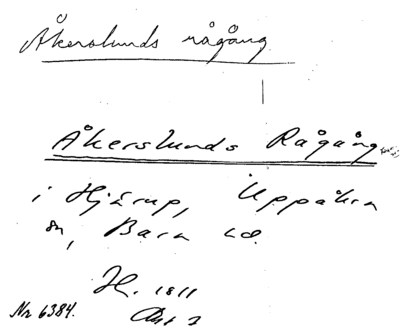 Åkerslunds rågång
Åkerslunds Rågång
i Hjärup, Uppåkra
sn, Bara hd.
H. 1811
Nr 6384. Akt 2